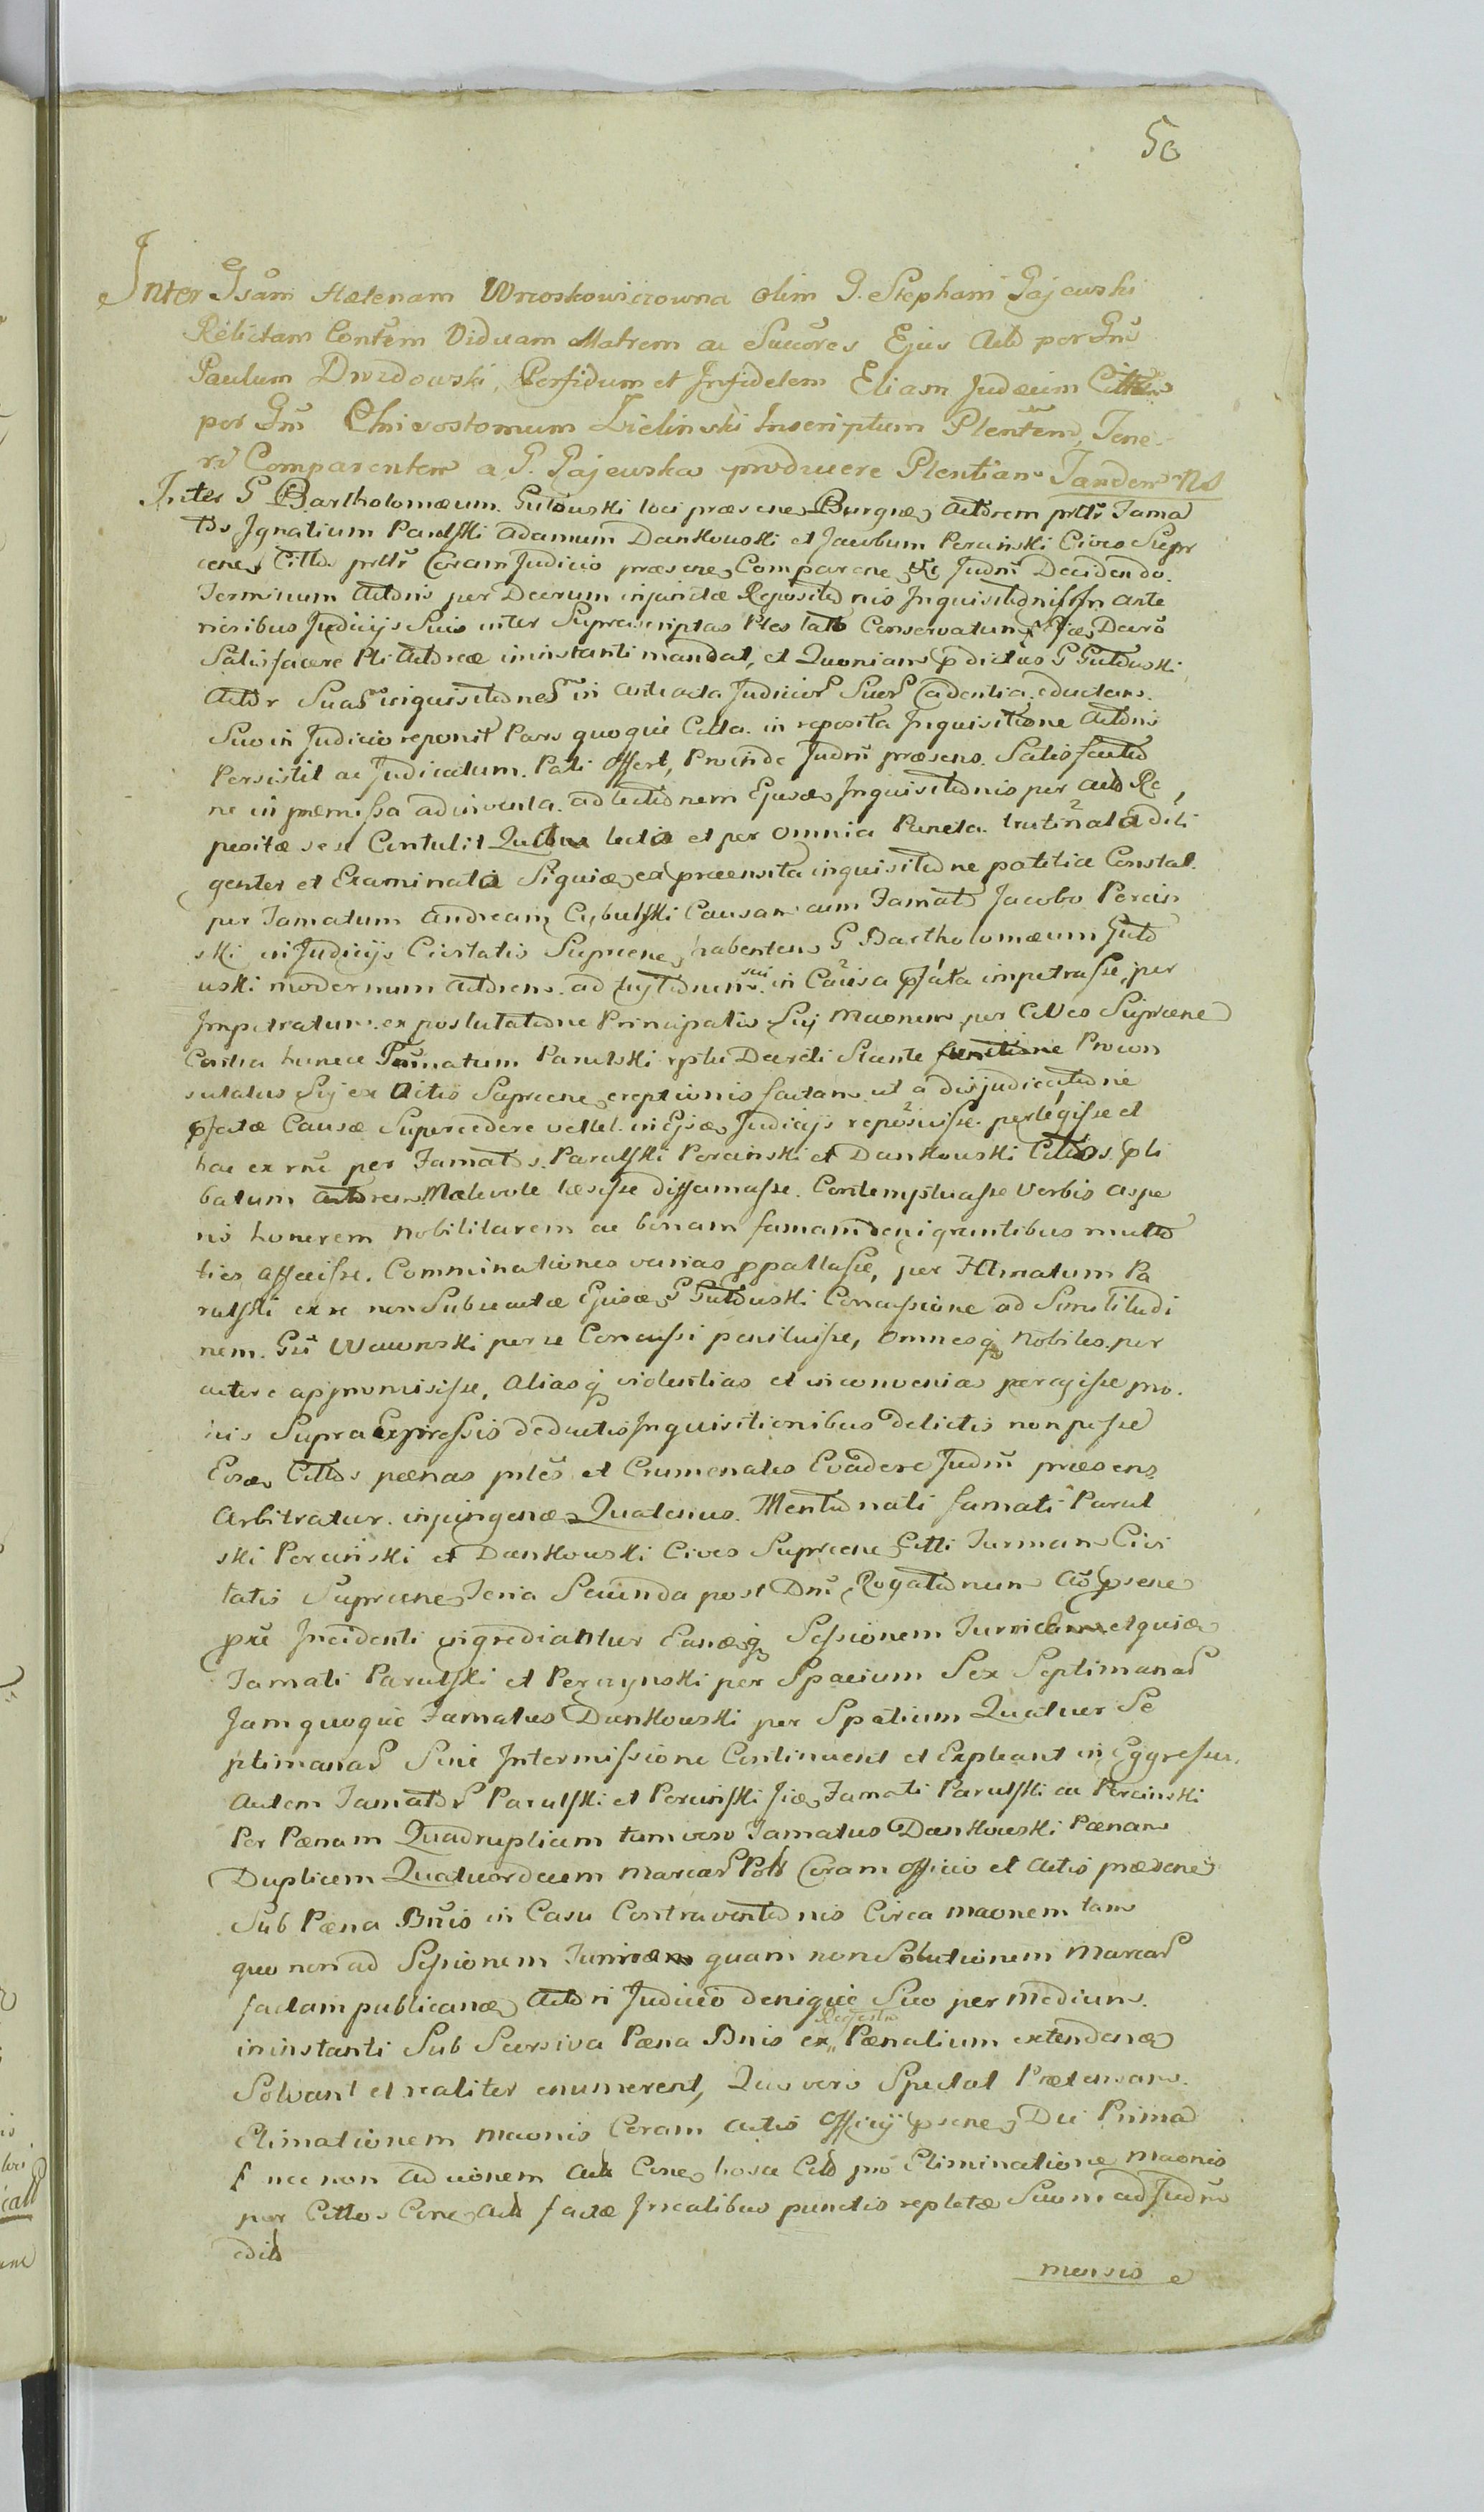 50
Inter Gsam Helenam Wnoskowiczowna olim G. Stephani Gajewski
Relictam Contem Viduam Matrem ac Succores Ejus Act per Gm
Paulum Drozdowski, Perfidum et Infidelem Eliasm Judæum
per Gm Chrisostomum Zielinski Inscriptum Plentem, Tene
ri Comparentem a G. Gajewska producere Plentiam Tandem Nos
Inter G Bartholomæum Gutowski loci præsenes Burgræ Actorem pttr Fama
tos Ignatium Parulski Adamum Dankowski et Jacobum Percinski Cives Supr
cenes Cittos pttr Coram Judicio præsenes Comparenes Judm Decidendo
Terminum Actoris per Decrum injunctæ Repositionis Inquisitionis In ante
rioribus Judicijs Suis inter Suprascriptas Ptes lato Conservatum Decro
Satisfacere Pti Actoreæ ininstanti mandat, et Quoniam pdictus G Gutowski
Actor Suas inquisitiones in anteacta Judicior Suor Cadentia eductam
Suo in Judicio reponit Pars quoque Citta in reposita Inquisitione Actoris
Persistit ac Judicatum Pati offert, Proinde Judm præsens Satisfactio
ne in præmissa adinventa ad lectionem Ejusæ Inquisitionis per act Re
positæ sese Contulit lecta et per omnia Puncta trutinata dili
genter et Examinata Siquiæ ex præensita inquisitione patetia Constat
per Famatum Andream Cybulski Causam cum Famato Jacobo Percin
ski in Judicijs Civitatis Suprcenes habentem G Bartholomæum Guto
wski modernum Actorem ad sui in Causa pfata impetrasse, per
Impetratum ex postulatione Principalis Sui Maonem per Cives Suprcene
Contra hunce Famatum Parulski Decreti Stante Procon
sulatus Sui ex Actis Suprcenes ereptionis factam ut a disjudicatione
pfatæ Causæ Supercedere vellet in Ejsæ Judicijs reposuisse perlegisse et
hac ex rne per Famatos Parulski Percinski et Dankowski Cittos
batum Actorem Malevole læsisse diffamasse Contemptuasse Verbis aspe
ris honorem Nobilitarem ac bonam famam denigrantibus multo
ties affecisse. Comminationes varias ppatlasse, per Famatum Pa
rulski exse non Subsecutæ Ejusæ G Gutowski Concussione ad Similitudi
nem Gsi Wawroski per se Concussi pensituisse, omnesq Nobiles per
cutere appromisisse, aliasq videntias et inconvenias peregisse pro
iis Supra Expressis deductis Inquisitionibus delictis non posse
Eosæ Cittos pænas ptles et Crumenales Evadere Judm præsens
Arbitratur injungenæ Quatenus Mentionati famati Parul
ski Percinski et Dankowski Cives Suprcenes Citti Turmam Civi
tatis Suprcenes Feria Secunda post Dnm Rogationum ad psene
pxe Incidenti ingrediantur Eanæq Sessionem Turricam etquiæ
Famati Parulski et Perczynski per Spacium Sex Septimanar
Jamquoque Famatus Dankowski per Spatium Quatuor Se
ptimanar Sine Intermissione Continuent et Expleant in Eggressu
Autem Famator Parulski et Percinski Siæ Famati Parulski ac Percinski
Per Pænam Quadruplicem tum vero Famatus Dankowski Pænam
Duplicem Quatuordecem Marcar Pol Coram Officio et Actis præsenes
Sub Pæna Bnis in Casu Contraventionis Circa maonem tam
quo non ad Sessionem Turricam quam non Solutionem Marcar
factam publicanæ Actori Judicio denique Suo per medium
ininstanti Sub Secursiva Pæna Bnis ex Regestro Pænalium extendenæ
Solvant et realiter enumerent, Quo vero Spectat Prætensam
Elimationem maonis Coram Actis Officij psenes Die Prima
nec non ad Cene hosce pro Eliminatione maonis
per Cittos Cene Act factæ Inealibus punctis repletæ Suom ad Judm
edit
mensis